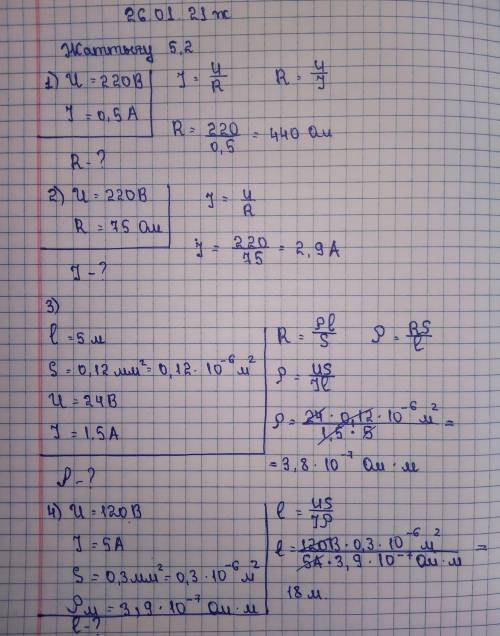 26.01.21ж
Жаттығу 5,2
1) U = 220В
I = 0,5 А
R - ?
I = U/R
R = U/I
R = 220/0,5 = 440 Ом
2) U = 220В
R = 75 Ом
I - ?
I = U/R
I = 220/75 = 2,9 А
3)
l = 5 м
S = 0,12 мм² = 0,12 · 10⁻⁶ м²
U = 24В
I = 1.5А
ρ - ?
R = ρl/S
ρ = RS/l
ρ = US/Il
ρ = 24 · 0,12 · 10⁻⁶ м²/1,5 · 5 =
= 3,8 · 10⁻⁷ Ом · м
4) U = 120В
I = 5А
S = 0,3 мм² = 0,3 · 10⁻⁶ м²
ρм = 3,9 · 10⁻⁷ Ом · м
l - ?
l = US/Iρ
l = 120В · 0,3 · 10⁻⁶ м²/5А · 3,9 · 10⁻⁷ Ом · м =
18 м.